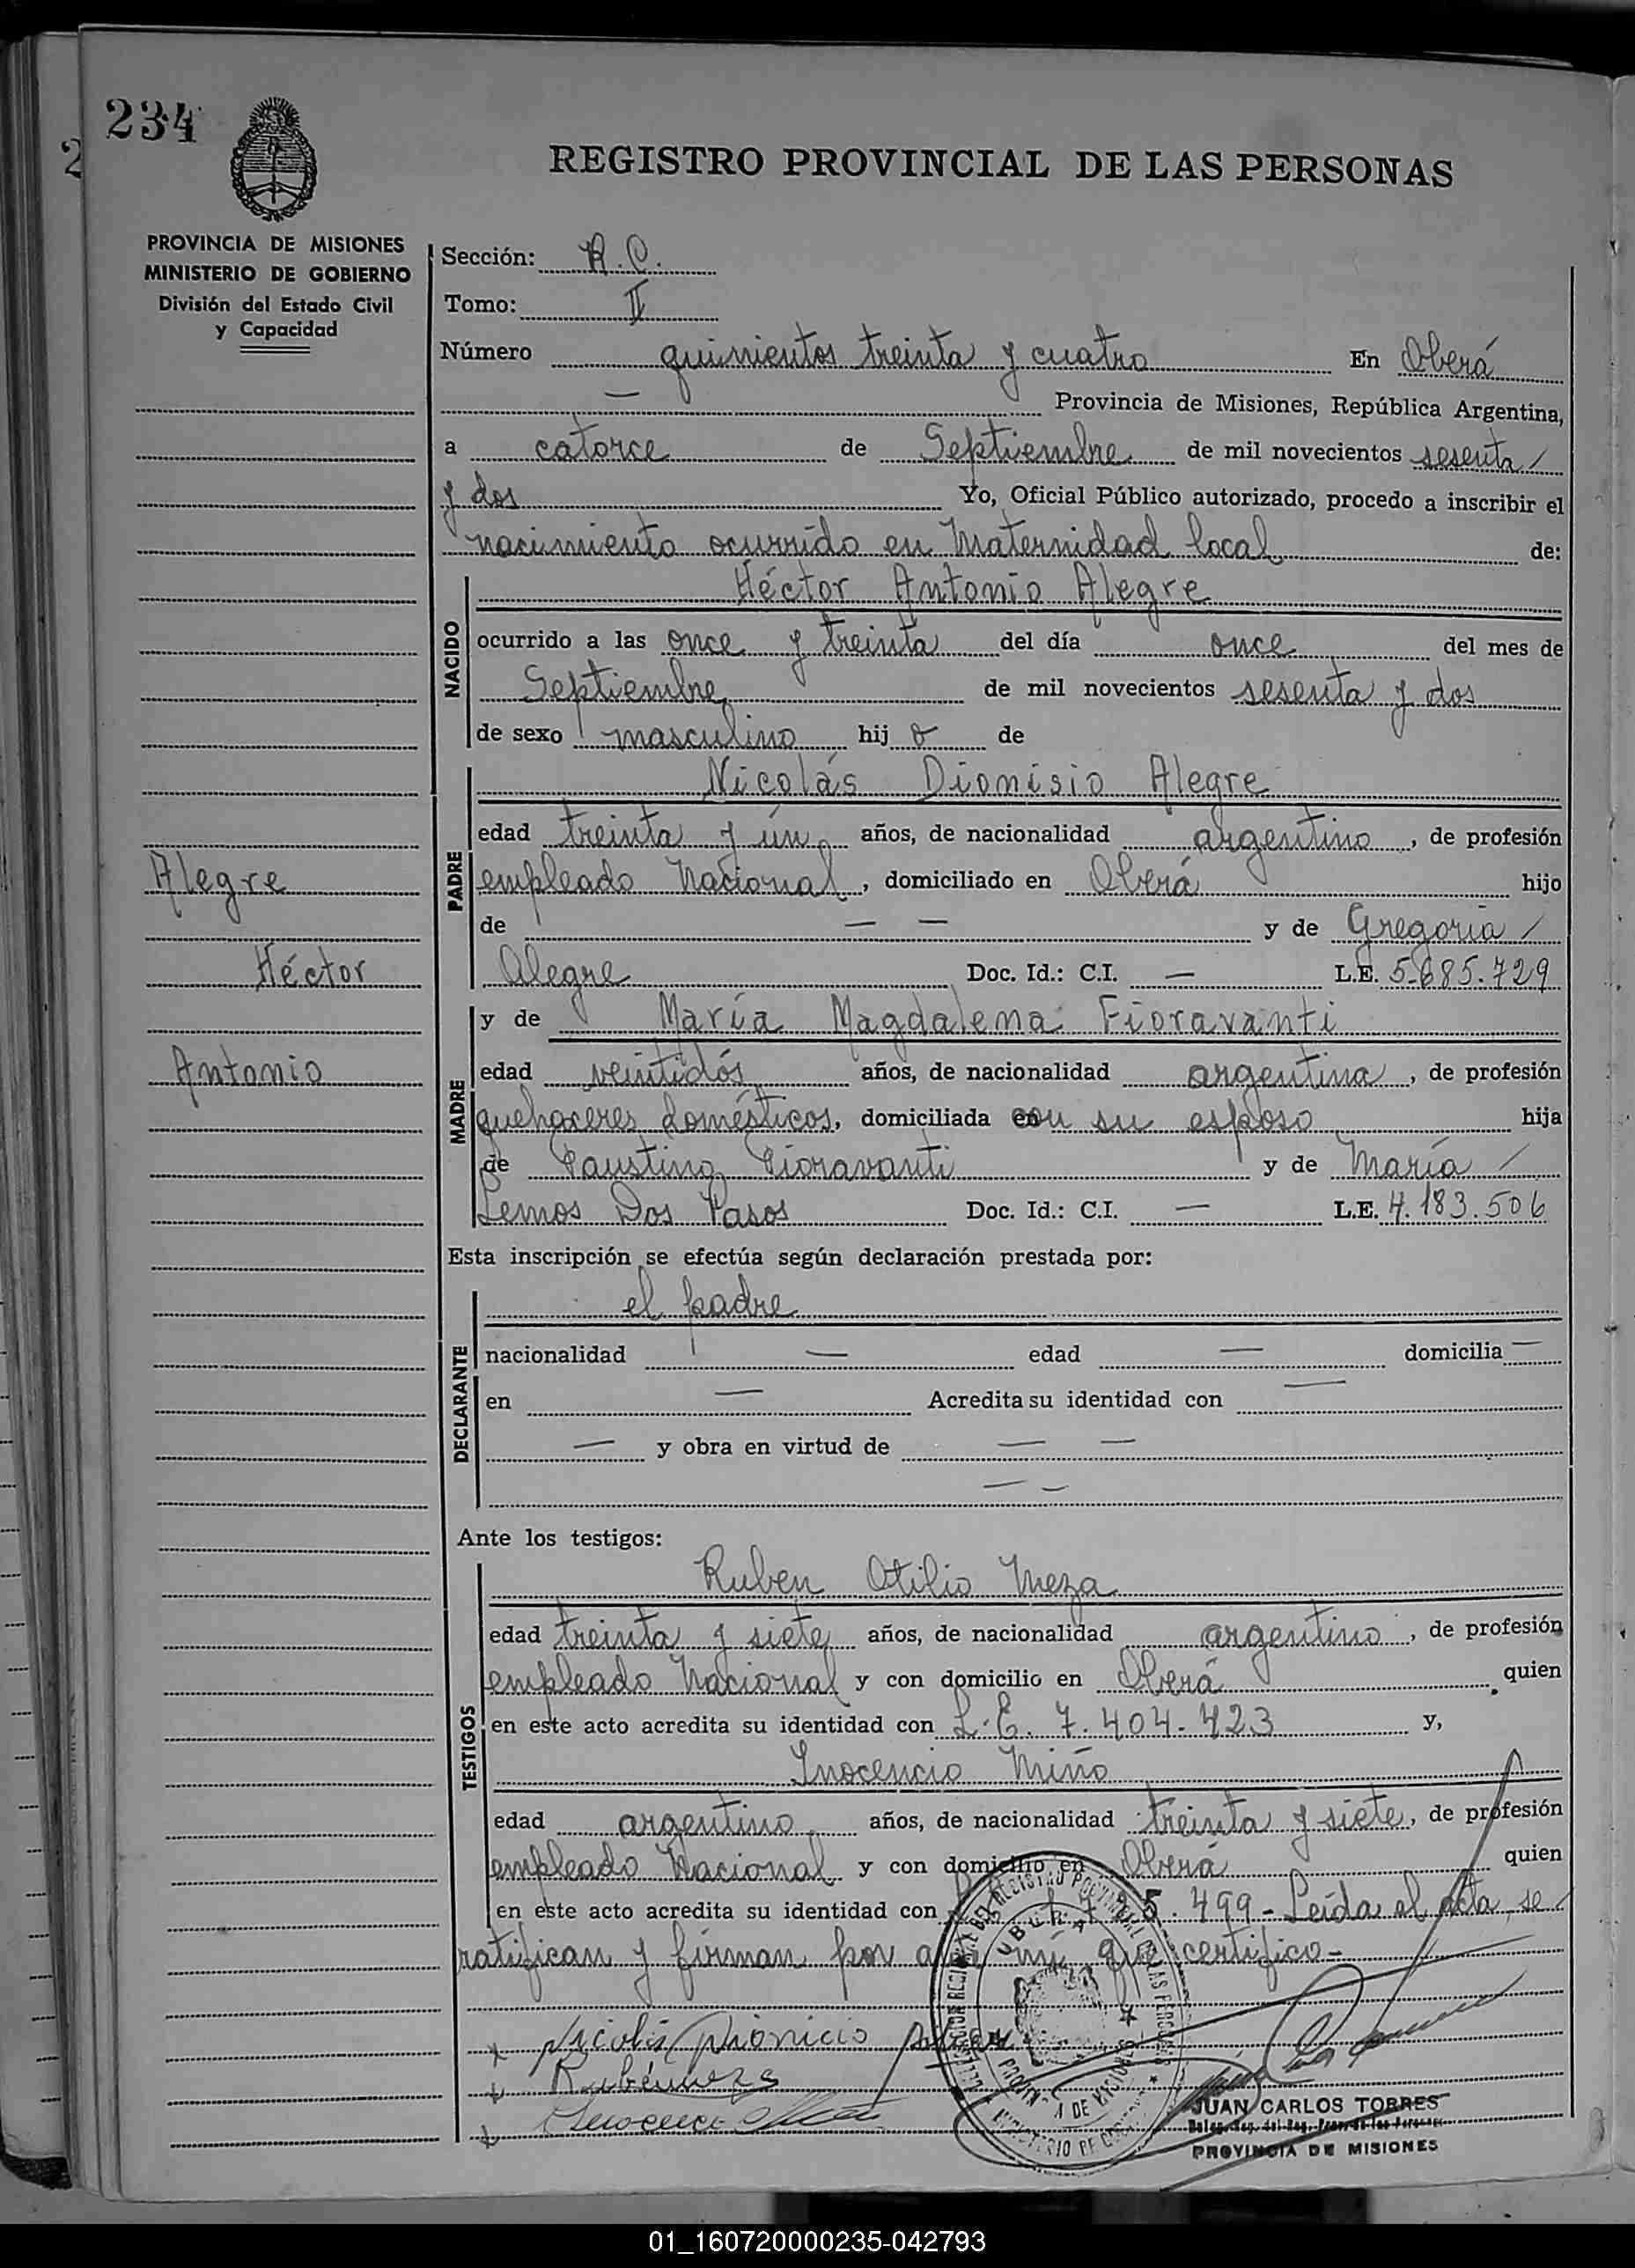 234
REGISTRO PROVINCIAL DE LAS PERSONAS
PROVINCIA DE MISIONES
MINISTERIO DE GOBIERNO
División del Estado Civil
y Capacidad
Sección: R.C.
Tomo: II
Número quinientos treinta y cuatro En Oberá
— Provincia de Misiones, República Argentina,
a catorce de Septiembre de mil novecientos sesenta /
y dos Yo, Oficial Público autorizado, procedo a inscribir el
nacimiento ocurrido en Maternidad local de:
Héctor Antonio Alegre
NACIDO
ocurrido a las once y treinta del día once del mes de
Septiembre de mil novecientos sesenta y dos
de sexo masculino hijo de
Nicolás Dionisio Alegre
PADRE
edad treinta y ún años, de nacionalidad argentino, de profesión
empleado Nacional, domiciliado en Oberá hijo
de — — y de Gregoria /
Alegre Doc. Id.: C.I. — L.E. 5.685.729
Alegre
Héctor
Antonio
y de María Magdalena Fioravanti
MADRE
edad veintidós años, de nacionalidad argentina, de profesión
quehaceres domésticos, domiciliada con su esposo hija
de Faustino Fioravanti y de María /
Lemos Dos Pasos Doc. Id.: C.I. — L.E. 4.183.506
Esta inscripción se efectúa según declaración prestada por:
el padre
DECLARANTE
nacionalidad — edad — domicilia —
en — Acredita su identidad con —
— y obra en virtud de — —
— —
Ante los testigos:
Ruben Otilio Meza
TESTIGOS
edad treinta y siete años, de nacionalidad argentino, de profesión
empleado Nacional y con domicilio en Oberá quien
en este acto acredita su identidad con L.E. 7.404.423 y,
Inocencio Miño
edad argentino años, de nacionalidad treinta y siete, de profesión
empleado Nacional y con domicilio en Oberá quien
en este acto acredita su identidad con 5.499 - Leída el acta, se
ratifican y firman por ante mí que certifico -
Nicolás Dionicio
Rubén Meza
Inocencio Miño
JUAN CARLOS TORRES
PROVINCIA DE MISIONES
01_160720000235-042793